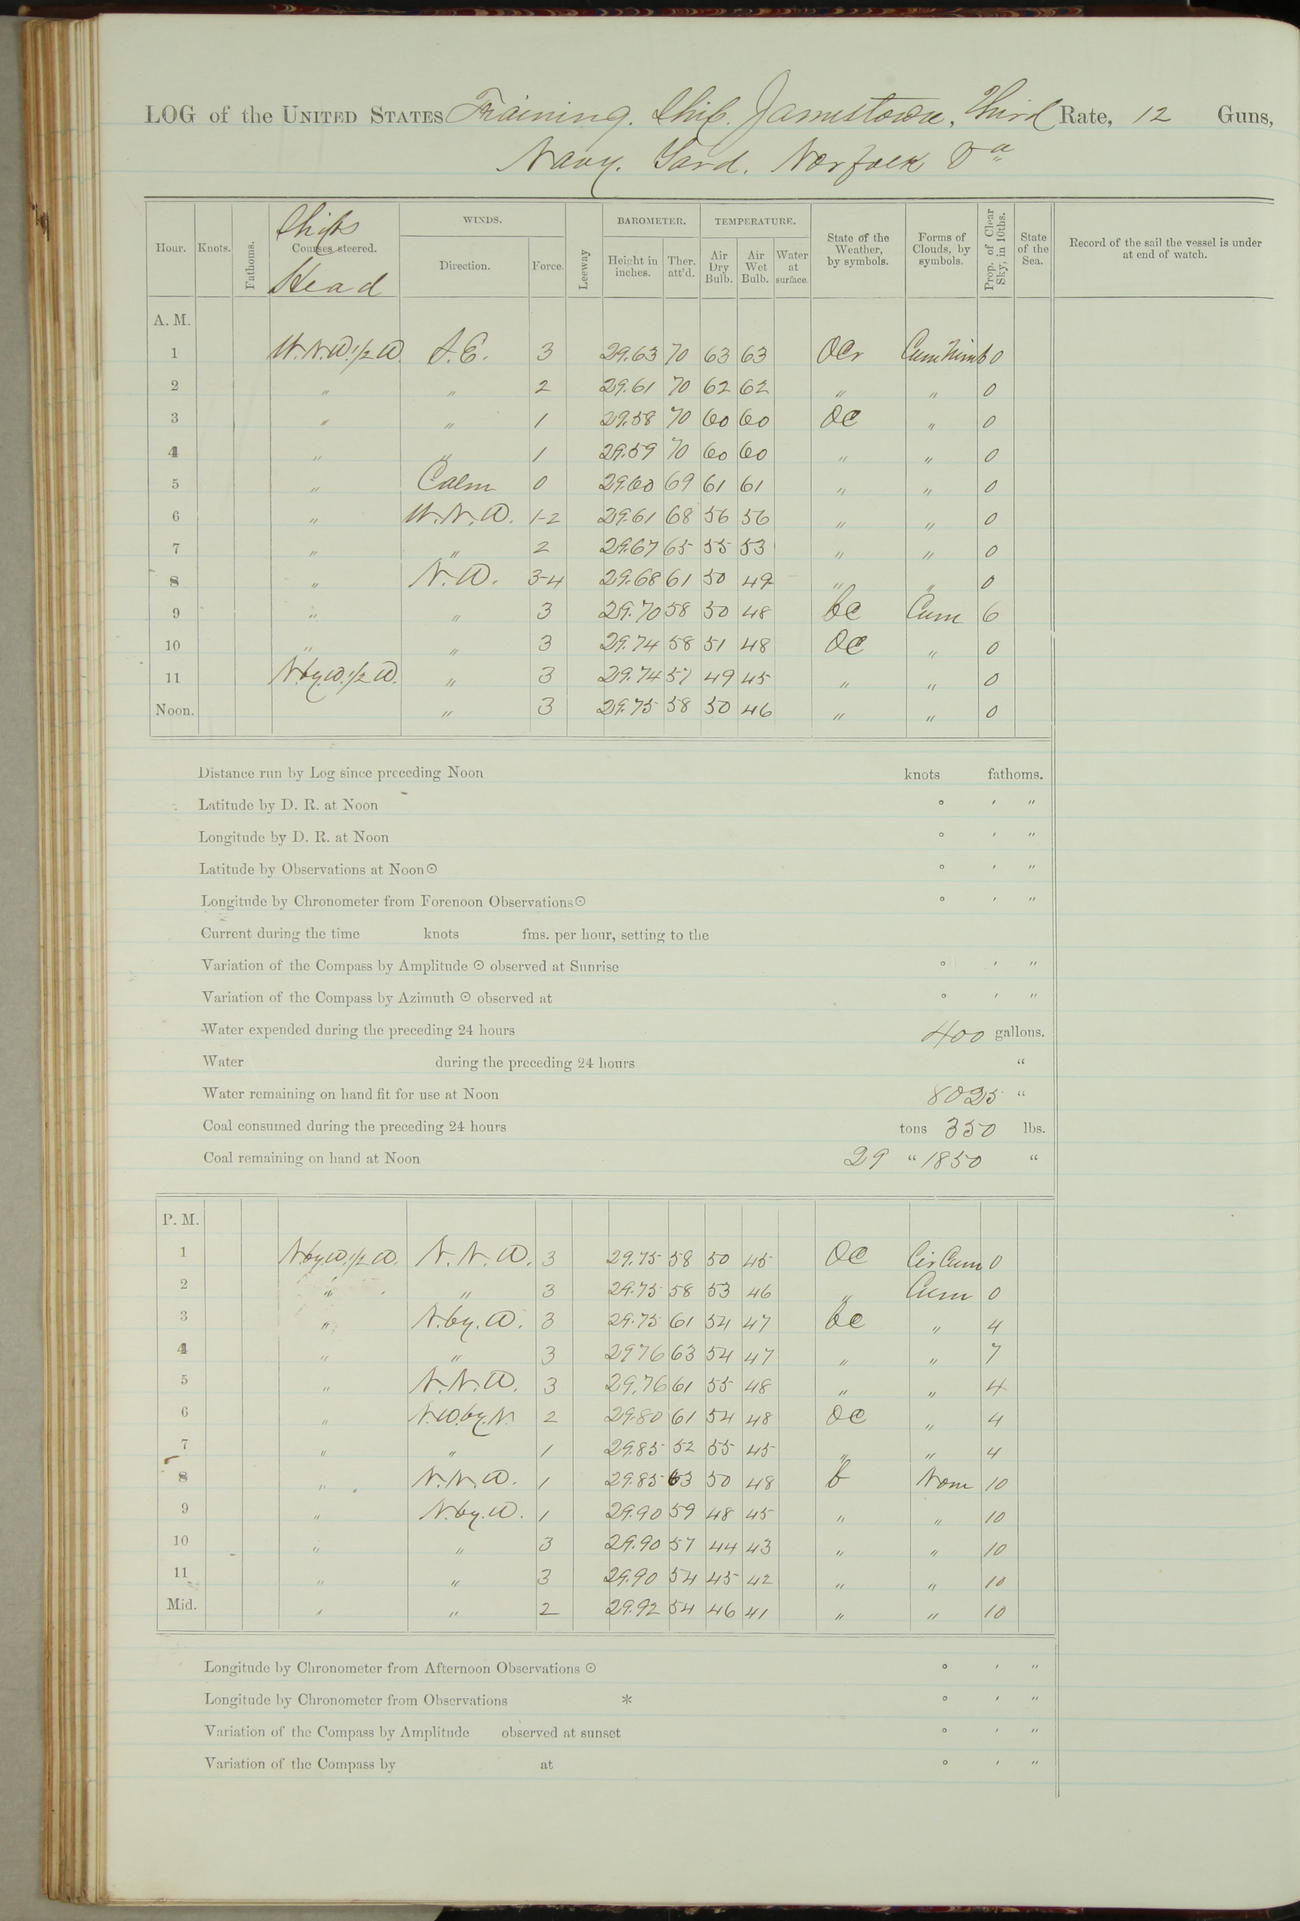 LOG of the UNITED STATES Training Ship Jamestown, Third Rate, 12 Guns,
Navy Yard, Norfolk Va
Hour. Knots. Fathoms. Ships Courses steered. Head WINDS. Direction. Force. Leeway BAROMETER. Height in inches. Ther. att'd. TEMPERATURE. Air Dry Bulb. Air Wet Bulb. Water at surface. State of the Weather, by symbols. Forms of Clouds, by symbols. Prop. of Clear Sky, in 10ths. State of the Sea. Record of the sail the vessel is under at end of watch.
A. M.
1 W.N.W.1/2 W. S.E. 3 29.63 70 63 63 OCr Cum Nimb 0
2 " " 2 29.61 70 62 62 " " 0
3 " " 1 29.58 70 60 60 OC " 0
4 " " 1 29.59 70 60 60 " " 0
5 " Calm 0 29.60 69 61 61 " " 0
6 " W.N.W. 1-2 29.61 68 56 56 " " 0
7 " " 2 29.67 65 55 53 " " 0
8 " N.W. 3-4 29.68 61 50 49 " " 0
9 " " 3 29.70 58 50 48 bc Cum 6
10 " " 3 29.74 58 51 48 OC " 0
11 N.by.W.1/2 W. " 3 29.74 57 49 45 " " 0
Noon. " 3 29.75 58 50 46 " " 0
Distance run by Log since preceding Noon knots fathoms.
Latitude by D. R. at Noon ° ′ ″
Longitude by D. R. at Noon ° ′ ″
Latitude by Observations at Noon ☉ ° ′ ″
Longitude by Chronometer from Forenoon Observations ☉ ° ′ ″
Current during the time knots fms. per hour, setting to the
Variation of the Compass by Amplitude ☉ observed at Sunrise ° ′ ″
Variation of the Compass by Azimuth ☉ observed at ° ′ ″
Water expended during the preceding 24 hours 400 gallons.
Water during the preceding 24 hours "
Water remaining on hand fit for use at Noon 8025 "
Coal consumed during the preceding 24 hours tons 350 lbs.
Coal remaining on hand at Noon 29 " 1850 "
P. M.
1 N.by.W.1/2 W. N.N.W. 3 29.75 58 50 45 OC Cir Cum 0
2 " " 3 29.75 58 53 46 " Cum 0
3 " N.by.W. 3 29.75 61 54 47 bc " 4
4 " " 3 2976 63 54 47 " " 7
5 " N.N.W. 3 29.76 61 55 48 " " 4
6 " N.W.by.N. 2 29.80 61 54 48 OC " 4
7 " " 1 29.85 52 55 45 " " 4
8 " N.N.W. 1 29.85 63 50 48 b Nom 10
9 " N.by.W. 1 29.90 59 48 45 " " 10
10 " " 3 29.90 57 44 43 " " 10
11 " " 3 29.90 54 45 42 " " 10
Mid. " " 2 29.92 54 46 41 " " 10
Longitude by Chronometer from Afternoon Observations ☉ ° ′ ″
Longitude by Chronometer from Observations * ° ′ ″
Variation of the Compass by Amplitude observed at sunset ° ′ ″
Variation of the Compass by at ° ′ ″